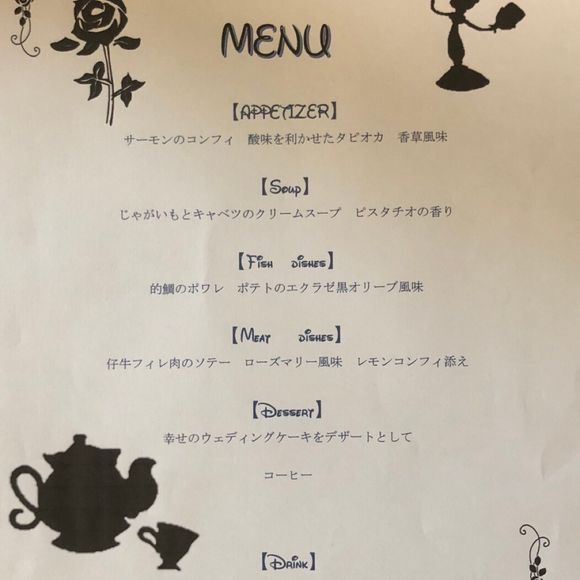 MENU
【APPETIZER】
サーモンのコンフィ　酸味を利かせたタピオカ　香草風味
【Soup】
じゃがいもとキャベツのクリームスープ　ピスタチオの香り
【Fish dishes】
的鯛のポワレ　ポテトのエクラゼ黒オリーブ風味
【Meat dishes】
仔牛フィレ肉のソテー　ローズマリー風味　レモンコンフィ添え
【Dessert】
幸せのウェディングケーキをデザートとして
コーヒー
【Drink】